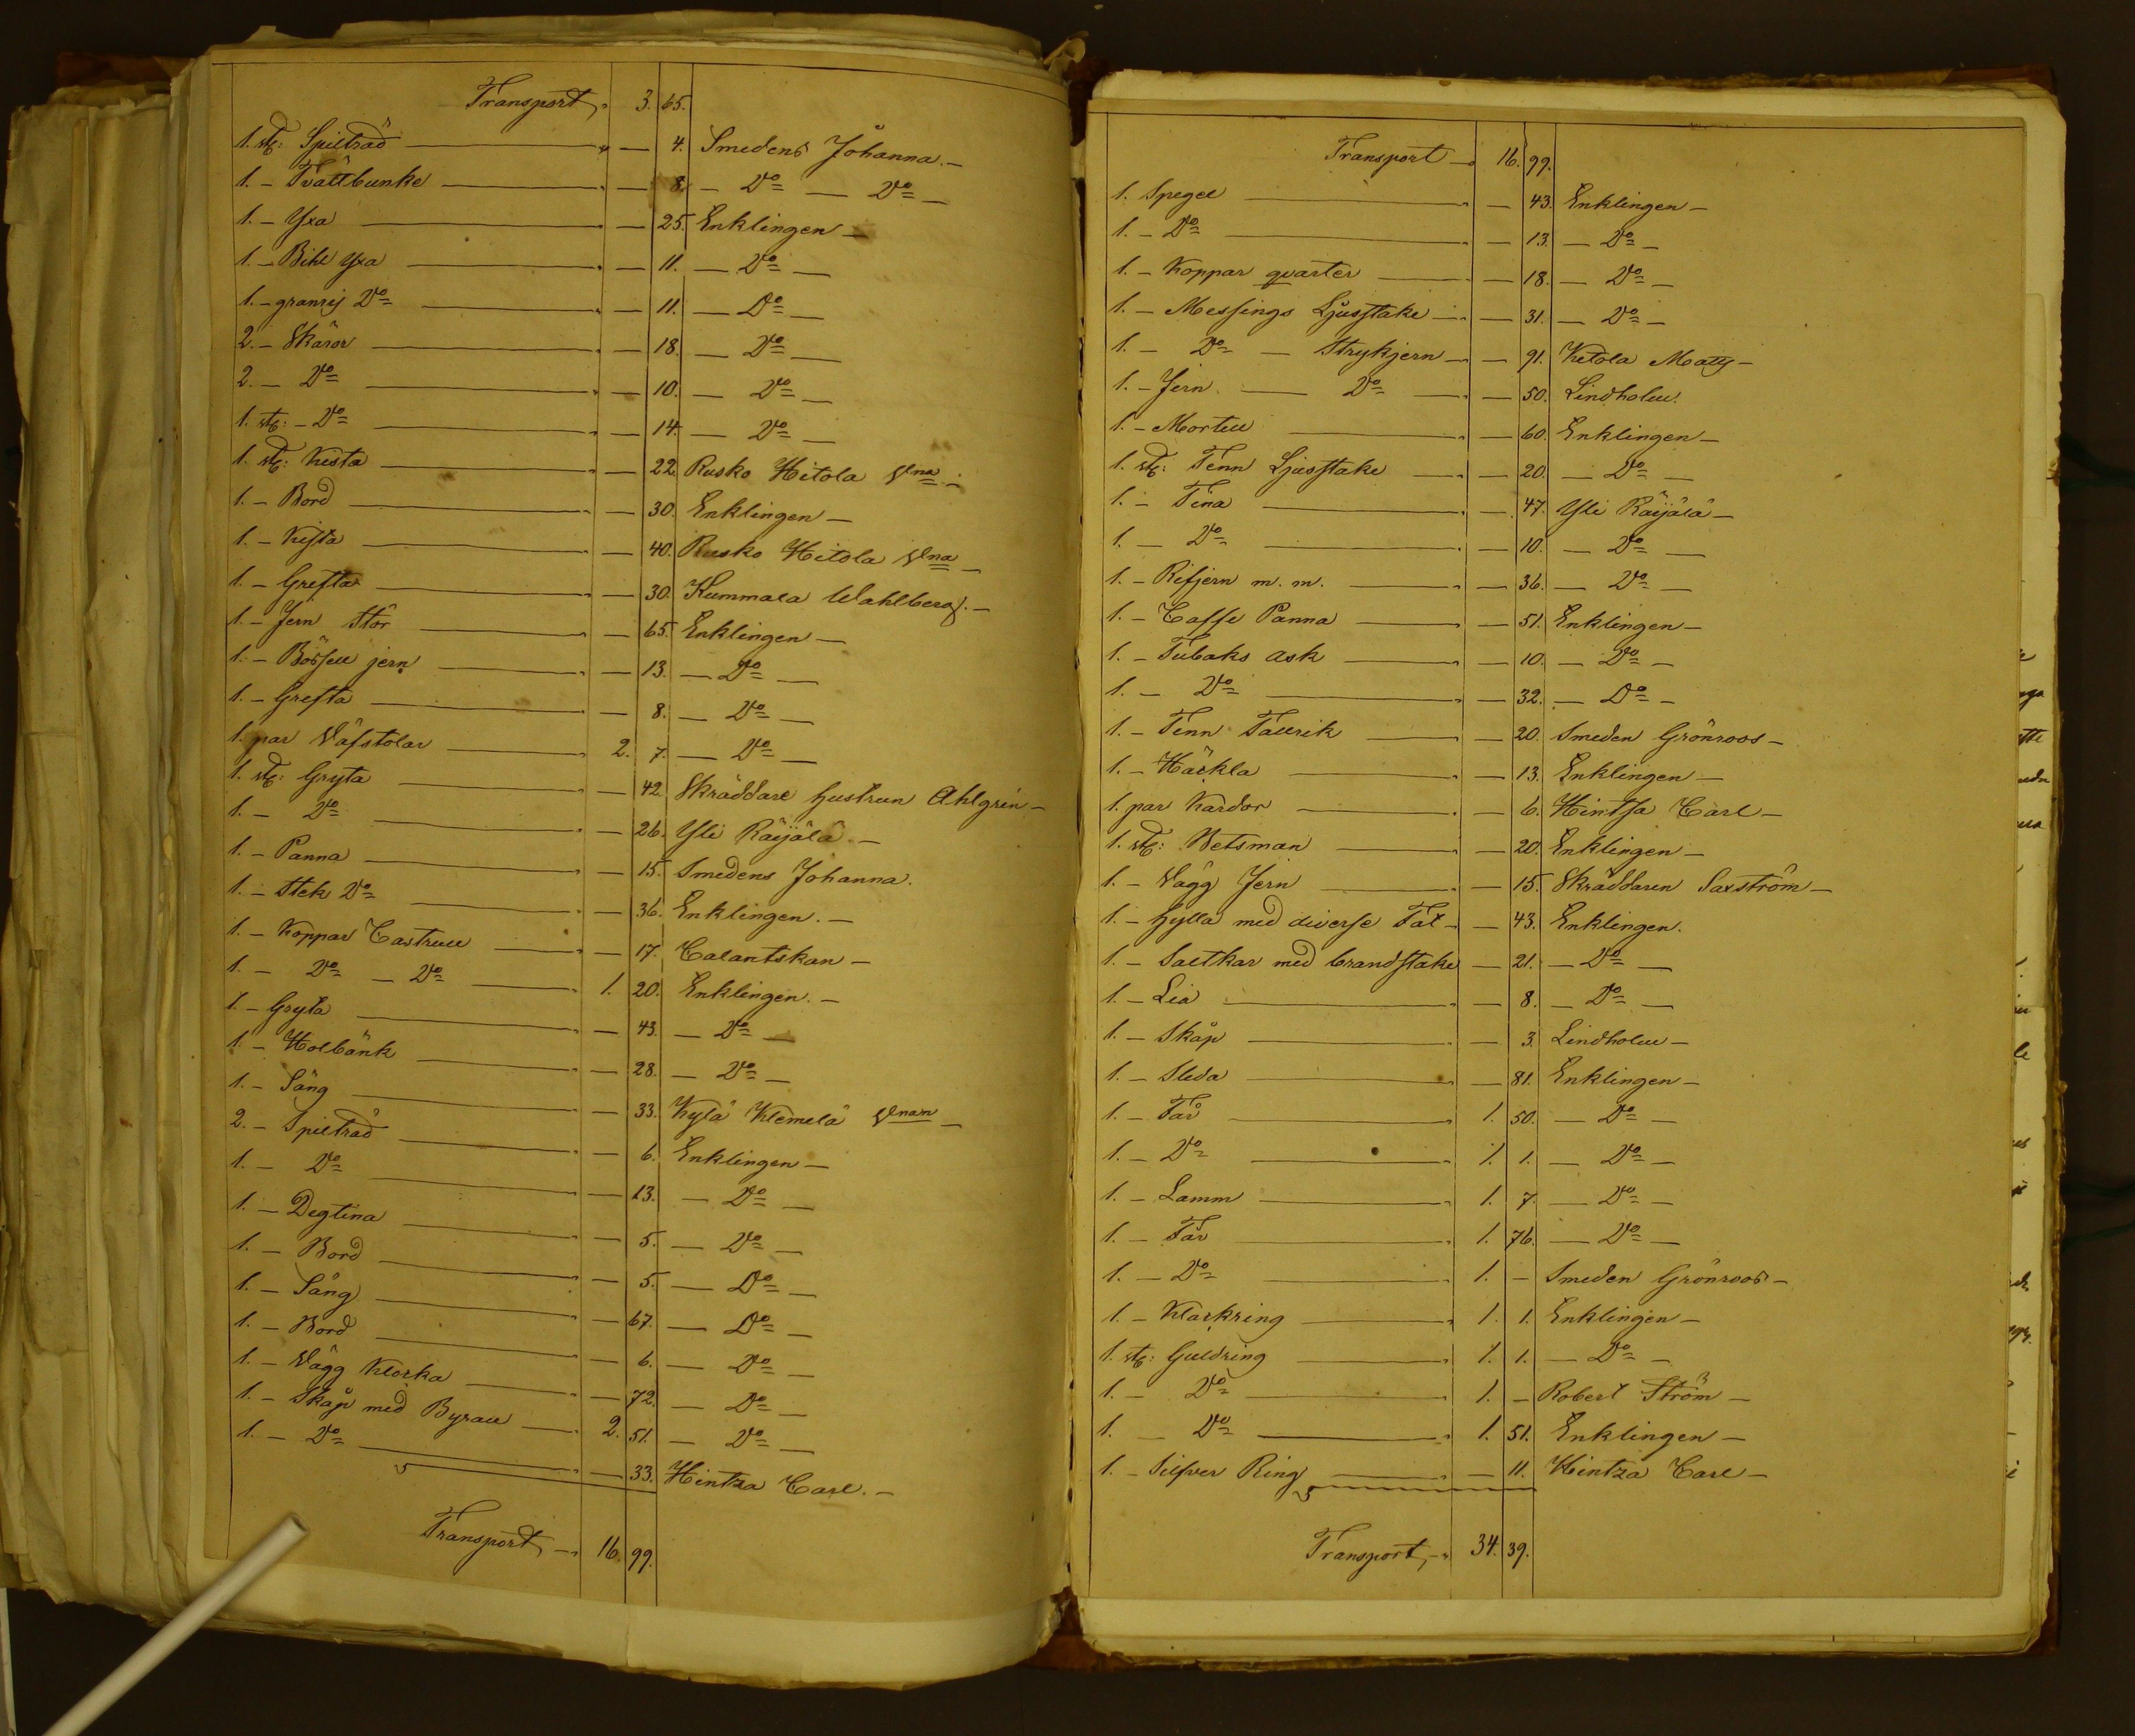 Transport, 3. 65.
1. st: Spilträd — 4. Smedens Johanna. —
1. — Tvättbunke — 8. — Do — Do —
1. — Yxa — 25. Enklingen —
1. — Bihl yxa — 11. — Do —
1. — granrij Do — 11. — Do —
2. — Skäror — 18. — Do —
2. — Do — 10. — Do —
1. st: — Do — 14. — Do —
1. st: Kista — 22. Rusko Hitola Vna —
1. — Bord — 30. Enklingen —
1. — Kista — 40. Rusko Hitola Vna —
1. — Grefta — 30. Kummala Wahlberg. —
1. — Jern Stör — 65. Enklingen —
1. — Bössell jern — 13. — Do —
1. — Grefta — 8. — Do —
1. par Väfstolar — 2. 7. — Do —
1. st: Gryta — 42. Skräddare hustrun Ahlgrén —
1. — Do — 26. Yli Räijälä. —
1. — Panna — 15. Smedens Johanna.
1. — Stek Do — 36. Enklingen. —
1. — Koppar Castrull — 17. Calantskan —
1. — Do — Do — 1. 20. Enklingen. —
1. — Gryta — 43. — Do —
1. — Holbänk — 28. — Do —
1. — Säng — 33. Kylä Klemelä Vnan —
2. — Spilträd — 6. Enklingen —
1. — Do — 13. — Do —
1. — Degtina — 5. — Do —
1. — Bord — 5. — Do —
1. — Säng — 67. — Do —
1. — Bord — 6. — Do —
1. — Vägg Klocka — 72. — Do —
1. — Skåp med Byrau — 2. 51. — Do —
1. — Do — 33. Hintza Carl. —
Transport, — 16. 99.
Transport — 16. 99.
1. Spegel — 43. Enklingen —
1. — Do — 13. — Do —
1. — Koppar qvarter — 18. — Do —
1. — Messings Ljusstake — 31. — Do —
1. — Do — Strykjern — 91. Ketola Matts —
1. — Jern — Do — 50. Lindholm.
1. — Mortell — 60. Enklingen —
1. st: Tenn Ljusstake — 20. — Do —
1. — Tina — 47. Yli Räijälä —
1. — Do — 10. — Do —
1. — Rifjern m. m. — 36. — Do —
1. — Caffe Panna — 51. Enklingen —
1. — Tubaks ask — 10. — Do —
1. — Do — 32. — Do —
1. — Tenn Tallrik — 20. Smeden Grönroos —
1. — Häckla — 13. Enklingen —
1. par Kardor — 6. Hintsa Carl —
1. st: Betsman — 20. Enklingen —
1. — Vägg Jern — 15. Skräddaren Saxström —
1. — hylla med diverse Fat — 43. Enklingen.
1. — Saltkar med brandstake — 21. — Do —
1. — Lia — 8. — Do —
1. — Skåp — 3. Lindholm —
1. — Sleda — 81. Enklingen —
1. — Får — 1. 50. — Do —
1. — Do — 1. 1. — Do —
1. — Lamm — 1. 7. — Do —
1. — Får — 1. 76. — Do —
1. — Do — 1. — Smeden Grönroos —
1. — Klackring — 1. 1. Enklingen —
1. st: Guldring — 1. 1. — Do —
1. — Do — 1. — Robert Ström —
1. — Do — 1. 51. Enklingen —
1. — Silfver Ring — 11. Hintza Carl —
Transport, — 34. 39.